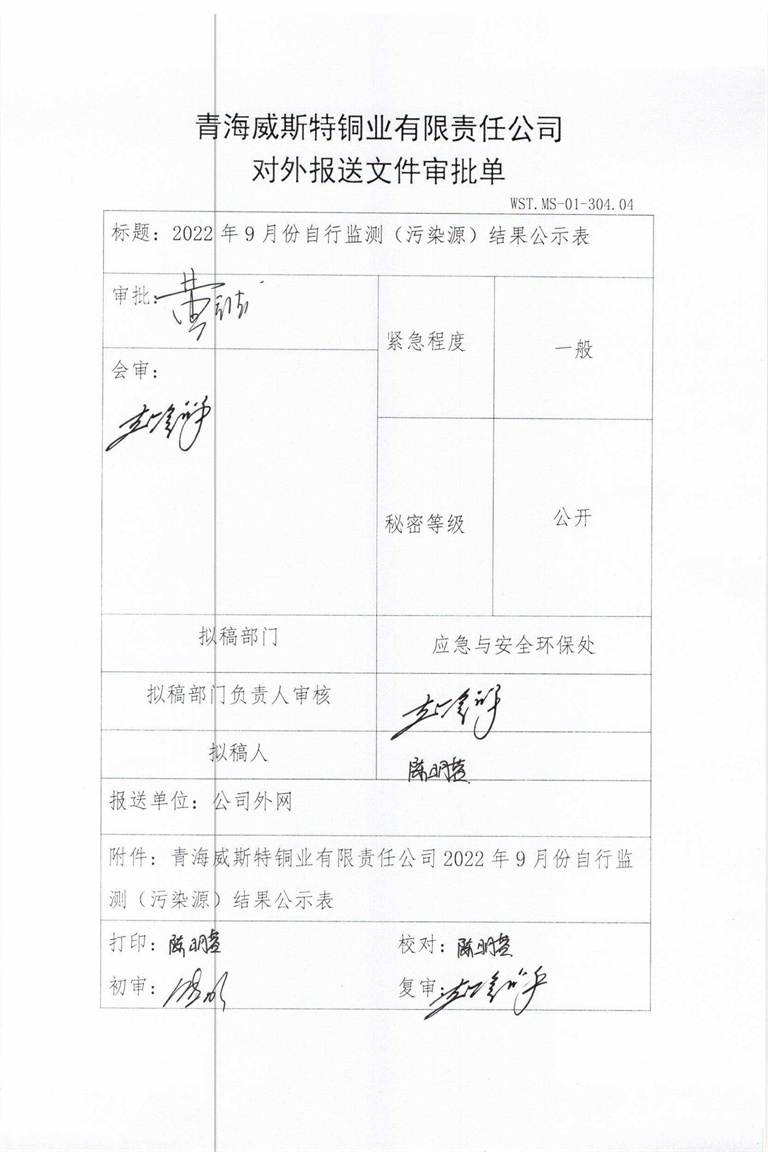 青海威斯特铜业有限责任公司
对外报送文件审批单
WST.MS-01-304.04
标题：2022年9月份自行监测（污染源）结果公示表
审批：
紧急程度
一般
会审：
秘密等级
公开
拟稿部门
应急与安全环保处
拟稿部门负责人审核
拟稿人
陈明萱
报送单位：公司外网
附件：青海威斯特铜业有限责任公司2022年9月份自行监
测（污染源）结果公示表
打印：陈明萱 校对：陈明萱
初审： 复审：